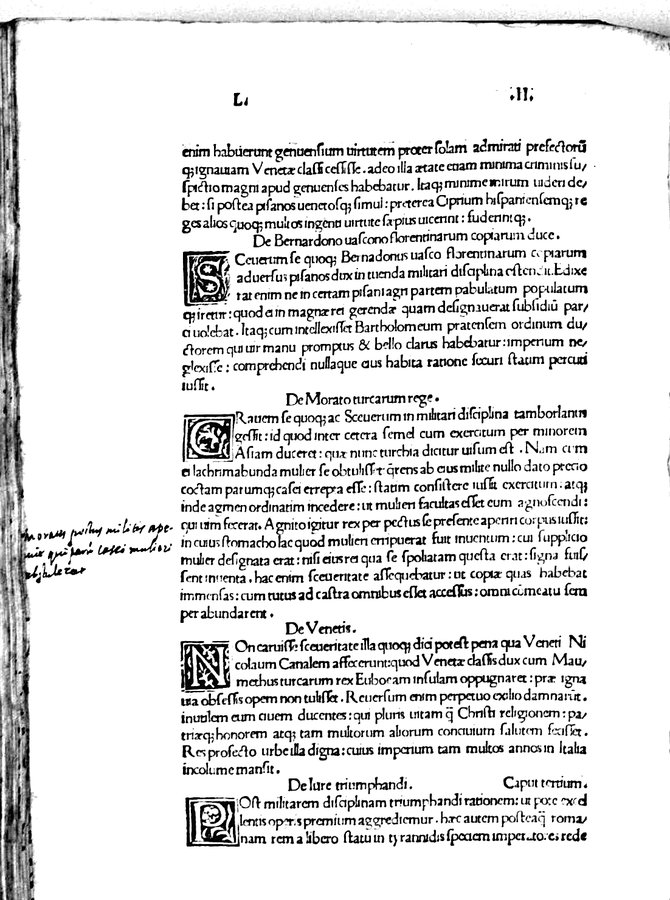 L. .II.
enim habuerunt genuensium uirtutem propter solam admirati prefectorū
q; ignauiam Venetæ classi cessisse. adeo illa ætate etiam minima criminis su/
spitio magni apud genuenses habebatur. Itaq; minime mirum uideri de/
bet: si postea pisanos uenetosq; simul: preterea Ciprium hispaniensemq; re
ges alios quoq; multos ingenti uirtute sæpius uicerint: fuderintq;.
De Bernardono uascono florentinarum copiarum duce.
SCeuerum se quoq; Bernadonus uasco florentinarum copiarum
aduersus pisanos dux in tuenda militari disciplina estendit. Edixe
rat enim ne in certam pisani agri partem pabulatum populatum
q; iretur: quod ei in magnæ rei gerendæ quam designauerat subsidiū par/
ci uolebat. Itaq; cum intellexisset Bartholomeum pratensem ordinum du/
ctorem qui uir manu promptus & bello clarus habebatur: imperium ne/
glexisse: comprehendi nullaque eius habita ratione securi statim percuti
iussit.
De Morato turcarum rege.
GRauem se quoq; ac Sceuerum in militari disciplina tamborlanus
gessit: id quod inter cetera semel cum exercitum per minorem
Asiam duceret: quæ nunc turchia dicitur uisum est. Nam cum
ei lachrimabunda mulier se obtulisset q̄rens ab eius milite nullo dato precio
coctam parumq; casei errepta esse: statim consistere iussit exercitum. atq;
inde agmen ordinatim incedere: ut mulieri facultas esset eum agnoscendi:
qui uim fecerat. Agnito igitur rex per pectus se presente aperiri corpus iussit:
in cuius stomacho lac quod mulieri erripuerat fuit inuentum: cui supplicio
mulier designata erat: nisi eius rei qua se spoliatam questa erat: signa fuis/
sent inuenta. hac enim sceueritate assequebatur: ut copiæ quas habebat
immensas: cum tutus ad castra omnibus esset accessus: omni cōmeatu sem
per abundarent.
De Venetis.
NOn caruisse sceueritate illa quoq; dici potest pena qua Veneti Ni
colaum Canalem affecerunt: quod Venetæ classis dux cum Mau/
methus turcarum rex Euboeam insulam oppugnaret: præ igna
uia obsessis opem non tulisset. Reuersum enim perpetuo exilio damnarūt.
inutilem eum ciuem ducentes: qui pluris uitam q̄ Christi religionem: pa/
triæq; honorem atq; tam multorum aliorum conciuium salutem fecisset.
Res profecto urbe illa digna: cuius imperium tam multos annos in Italia
incolume mansit.
De Iure triumphandi. Caput tertium.
POst militarem disciplinam triumphandi rationem: ut pote excel
lentis operis premium aggrediemur. hæc autem posteaq̄ roma/
nam rem a libero statu in tyrannidis speciem imperatores rede